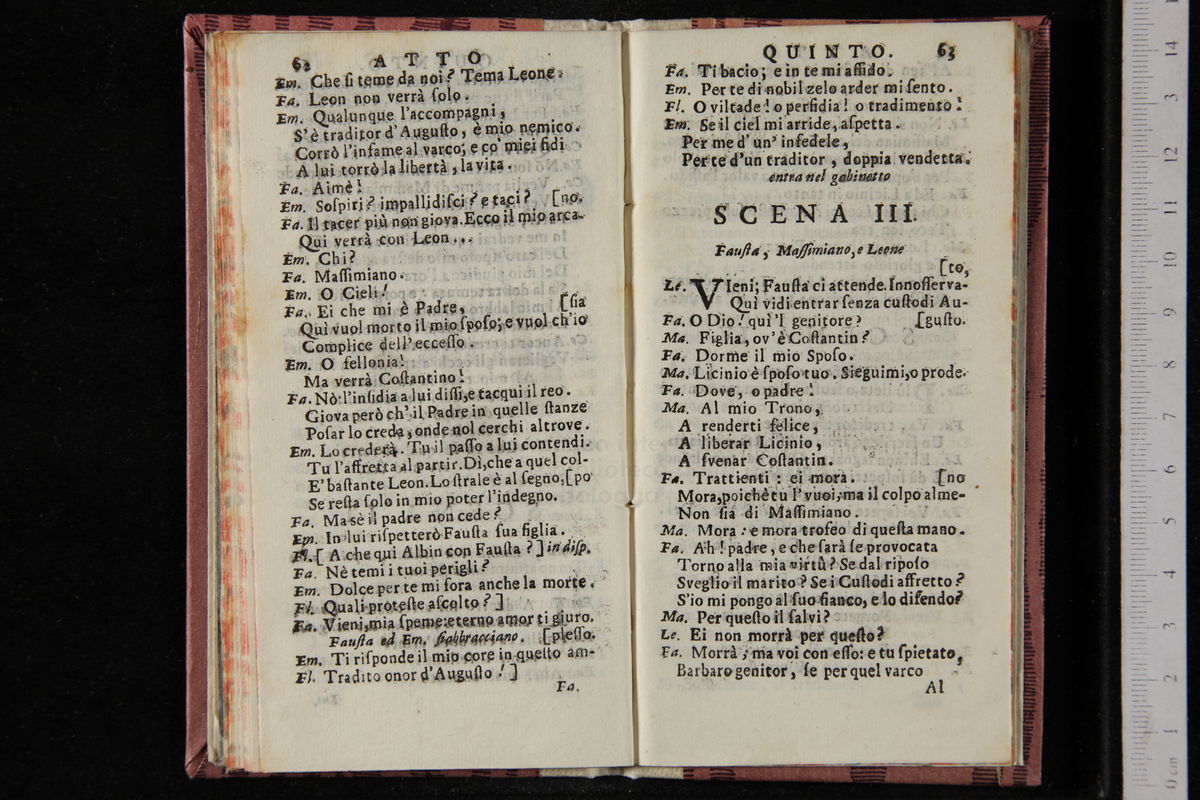 62 ATTO
Em. Che ſi teme da noi? Tema Leone.
Fa. Leon non verrà ſolo.
Em. Qualunque l'accompagni,
S'è traditor d'Auguſto, è mio nemico.
Corrò l'infame al varco; e co' miei fidi
A lui torrò la libertà, la vita.
Fa. Aimè!
Em. Soſpiri? impallidiſci? e taci? [no.
Fa. Il tacer più non giova. Ecco il mio arca-
Qui verrà con Leon...
Em. Chi?
Fa. Maſſimiano.
Em. O Cieli!
Fa. Ei che mi è Padre, [ſia
Qui vuol morto il mio ſpoſo; e vuol ch'io
Complice dell'ecceſſo.
Em. O fellonia!
Ma verrà Coſtantino!
Fa. Nò: l'inſidia a lui diſſi, e tacqui il reo.
Giova però ch' il Padre in quelle ſtanze
Poſar lo creda, onde nol cerchi altrove.
Em. Lo crederà. Tu il paſſo a lui contendi.
Tu l'affretta al partir. Dì, che a quel col-
E' baſtante Leon. Lo ſtrale è al ſegno, [po
Se reſta ſolo in mio poter l'indegno.
Fa. Ma sè il padre non cede?
Em. In lui riſpetterò Fauſta ſua figlia.
Fl. [ A che qui Albin con Fauſta? ] in diſp.
Fa. Nè temi i tuoi perigli?
Em. Dolce per te mi fora anche la morte.
Fl. Quali proteſte aſcolto? ]
Fa. Vieni, mia ſpeme: eterno amor ti giuro.
Fauſta ed Em. ſi abbracciano. [pleſſo.
Em. Ti riſponde il mio core in queſto am-
Fl. Tradito onor d'Auguſto! ]
Fa.
QUINTO. 63
Fa. Ti bacio; e in te mi affido.
Em. Per te di nobil zelo arder mi ſento.
Fl. O viltade! o perfidia! o tradimento!
Em. Se il ciel mi arride, aſpetta.
Per me d'un' infedele,
Per te d'un traditor, doppia vendetta.
entra nel gabinetto
SCENA III.
Fauſta, Maſſimiano, e Leone
[to,
Le. VIeni; Fauſta ci attende. Innoſſerva-
Qui vidi entrar ſenza cuſtodi Au-
Fa. O Dio! quì 'l genitore? [guſto.
Ma. Figlia, ov'è Coſtantin?
Fa. Dorme il mio Spoſo.
Ma. Licinio è ſpoſo tuo. Sieguimi, o prode.
Fa. Dove, o padre!
Ma. Al mio Trono,
A renderti felice,
A liberar Licinio,
A ſvenar Coſtantin.
Fa. Trattienti: ei mora. [no
Mora, poichè tu l'vuoi; ma il colpo alme-
Non ſia di Maſſimiano.
Ma. Mora: e mora trofeo di queſta mano.
Fa. Ah! padre, e che ſarà ſe provocata
Torno alla mia virtù? Se dal ripoſo
Sveglio il marito? Se i Cuſtodi affretto?
S'io mi pongo al ſuo fianco, e lo difendo?
Ma. Per queſto il ſalvi?
Le. Ei non morrà per queſto?
Fa. Morrà; ma voi con eſſo: e tu ſpietato,
Barbaro genitor, ſe per quel varco
Al